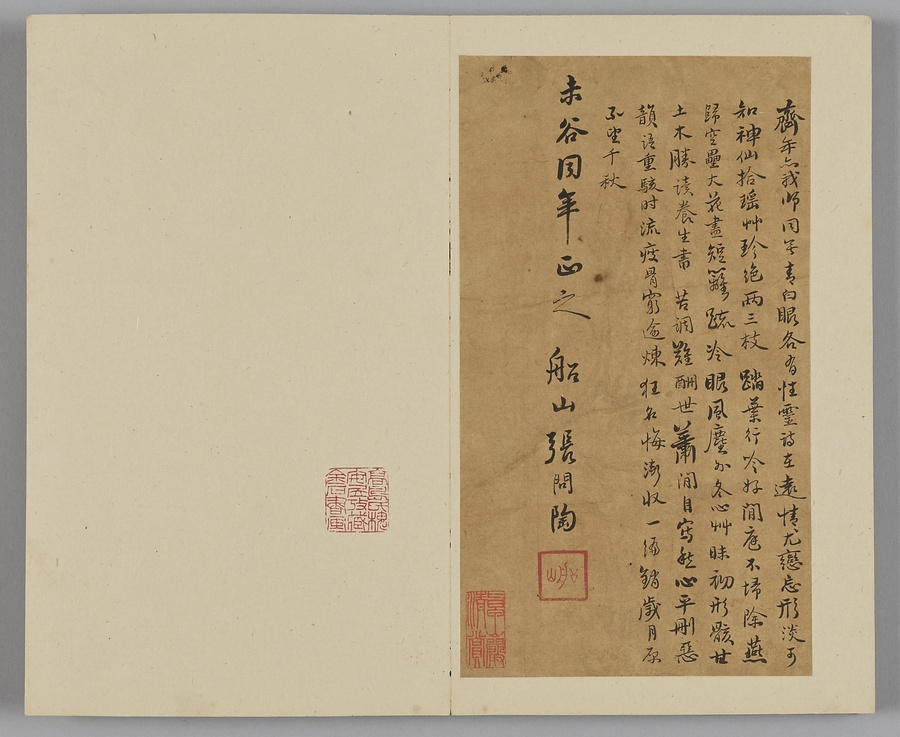 齊年亦我师同青白眼各有性靈詩在遠情尤戀忘形淡可
知神仙拾瑶艸珍絶兩三枝 踏葉行吟好閒庭不埽除燕
歸空壘大花盡短籬疏冷眼風塵外冬心艸昧初形骸甘
土木勝讀養生書 苦調難酬世蕭閒自寫愁心平刪惡
韻語重駭时流疲骨窮逾煉狂名悔漸收一编銷歲月原
不望千秋
未谷同年正之 船山張問陶
船山